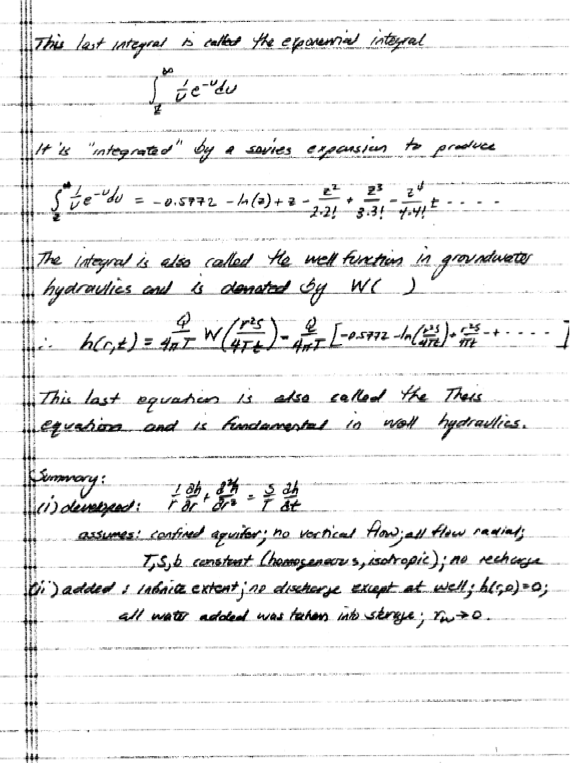 This last integral is called the exponential integral
∫_z^∞ 1/u e^-u du
It is "integrated" by a series expansion to produce
∫_z^∞ 1/u e^-u du = -0.5772 - ln(z) + z - z²/2.2! + z³/3.3! - z⁴/4.4! + ....
The integral is also called the well function in groundwater
hydraulics and is denoted by W( )
∴ h(r,t) = Q/4πT W(r²S/4Tt) = Q/4πT [-0.5772 - ln(r²S/4Tt) + r²S/4Tt - + ····]
This last equation is also called the Theis
equation and is fundamental in well hydraulics.
Summary:
(i) developed: 1/r ∂h/∂r + ∂²h/∂r² = S/T ∂h/∂t
assumes: confined aquifer; no vertical flow; all flow radial;
T,S,b constant (homogenaeous, isotropic); no recharge
(ii) added: infinite extent; no discharge except at well; h(r,0)=0;
all water added was taken into storage; r_w→0.